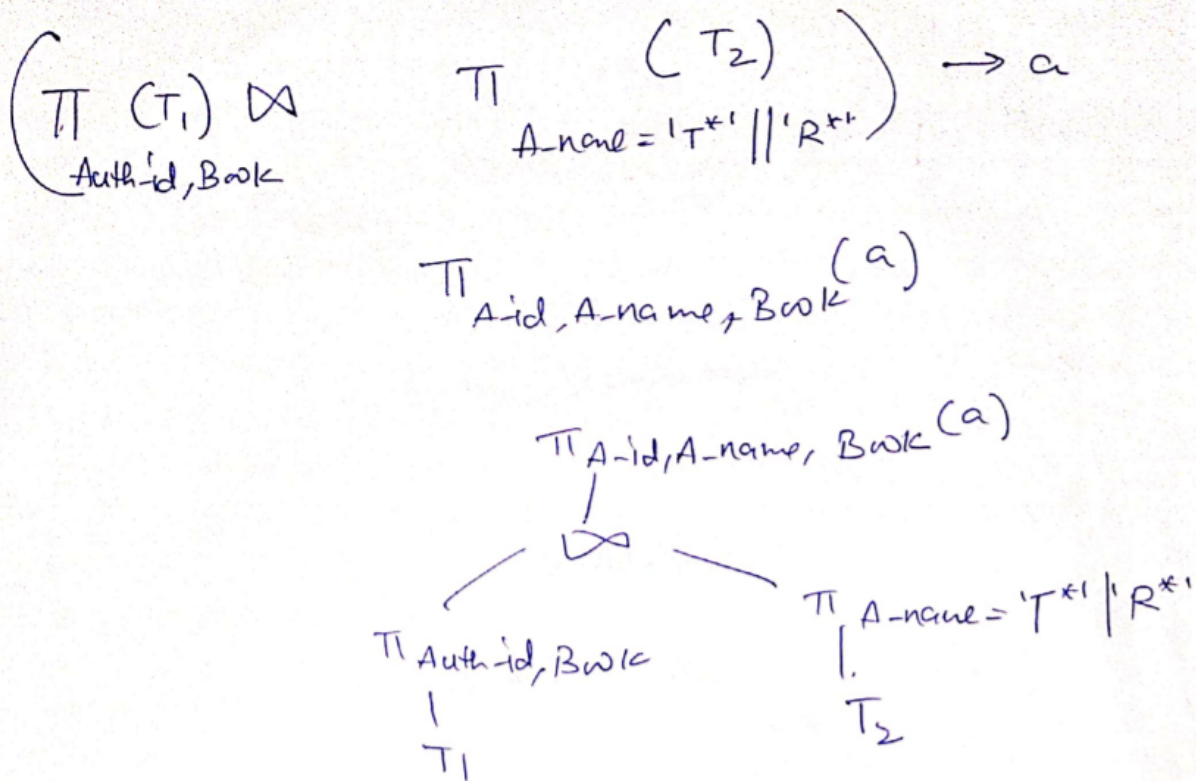 (π Auth-id, Book (T1) ⋈ π A-name = 'T*' || 'R*' (T2)) → a
π A-id, A-name, Book (a)
π A-id, A-name, Book (a)
⋈
π Auth-id, Book π A-name = 'T*' | 'R*'
T1 T2